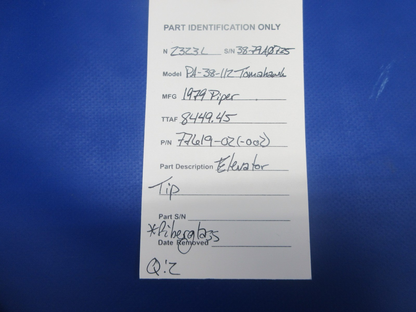 PART IDENTIFICATION ONLY
N 2323L S/N 38-79A
Model PA-38-112 Tomahawk
MFG 1979 Piper
TTAF 8449.45
P/N 77619-02(-002)
Part Description Elevator
Tip
Part S/N
*Fiberglass
Date Removed
Q:2